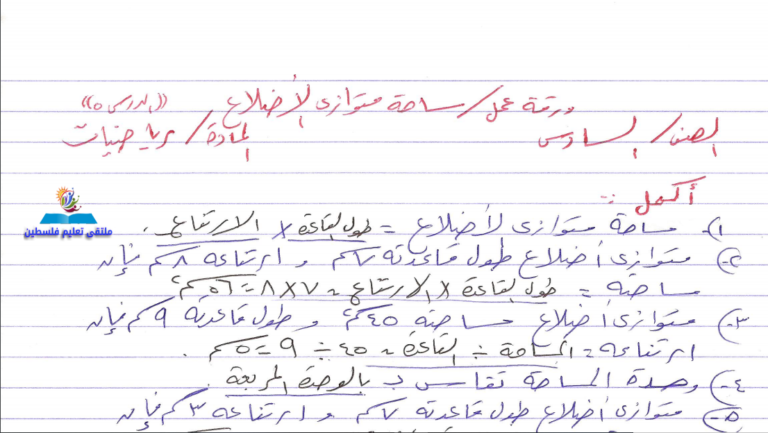 ورقة عمل / مساحة متوازي الأضلاع ((الدرس ٥))
الصف / السادس المادة / رياضيات
أكمل :-
ملتقى تعليم فلسطين
١- مساحة متوازي الأضلاع = طول القاعدة × الارتفاع .
٢- متوازي أضلاع طول قاعدته ٧ سم و ارتفاعه ٨ سم فإن
مساحته = طول القاعدة × الارتفاع = ٧×٨ = ٥٦ سم²
٣- متوازي أضلاع مساحته ٤٥ سم² و طول قاعدته ٩ سم فإن
ارتفاعه = المساحة ÷ القاعدة = ٤٥ ÷ ٩ = ٥ سم .
٤- وحدة المساحة تقاس ب بالوحدة المربعة .
٥- متوازي أضلاع طول قاعدته ٧ سم و ارتفاعه ٣ سم فإن